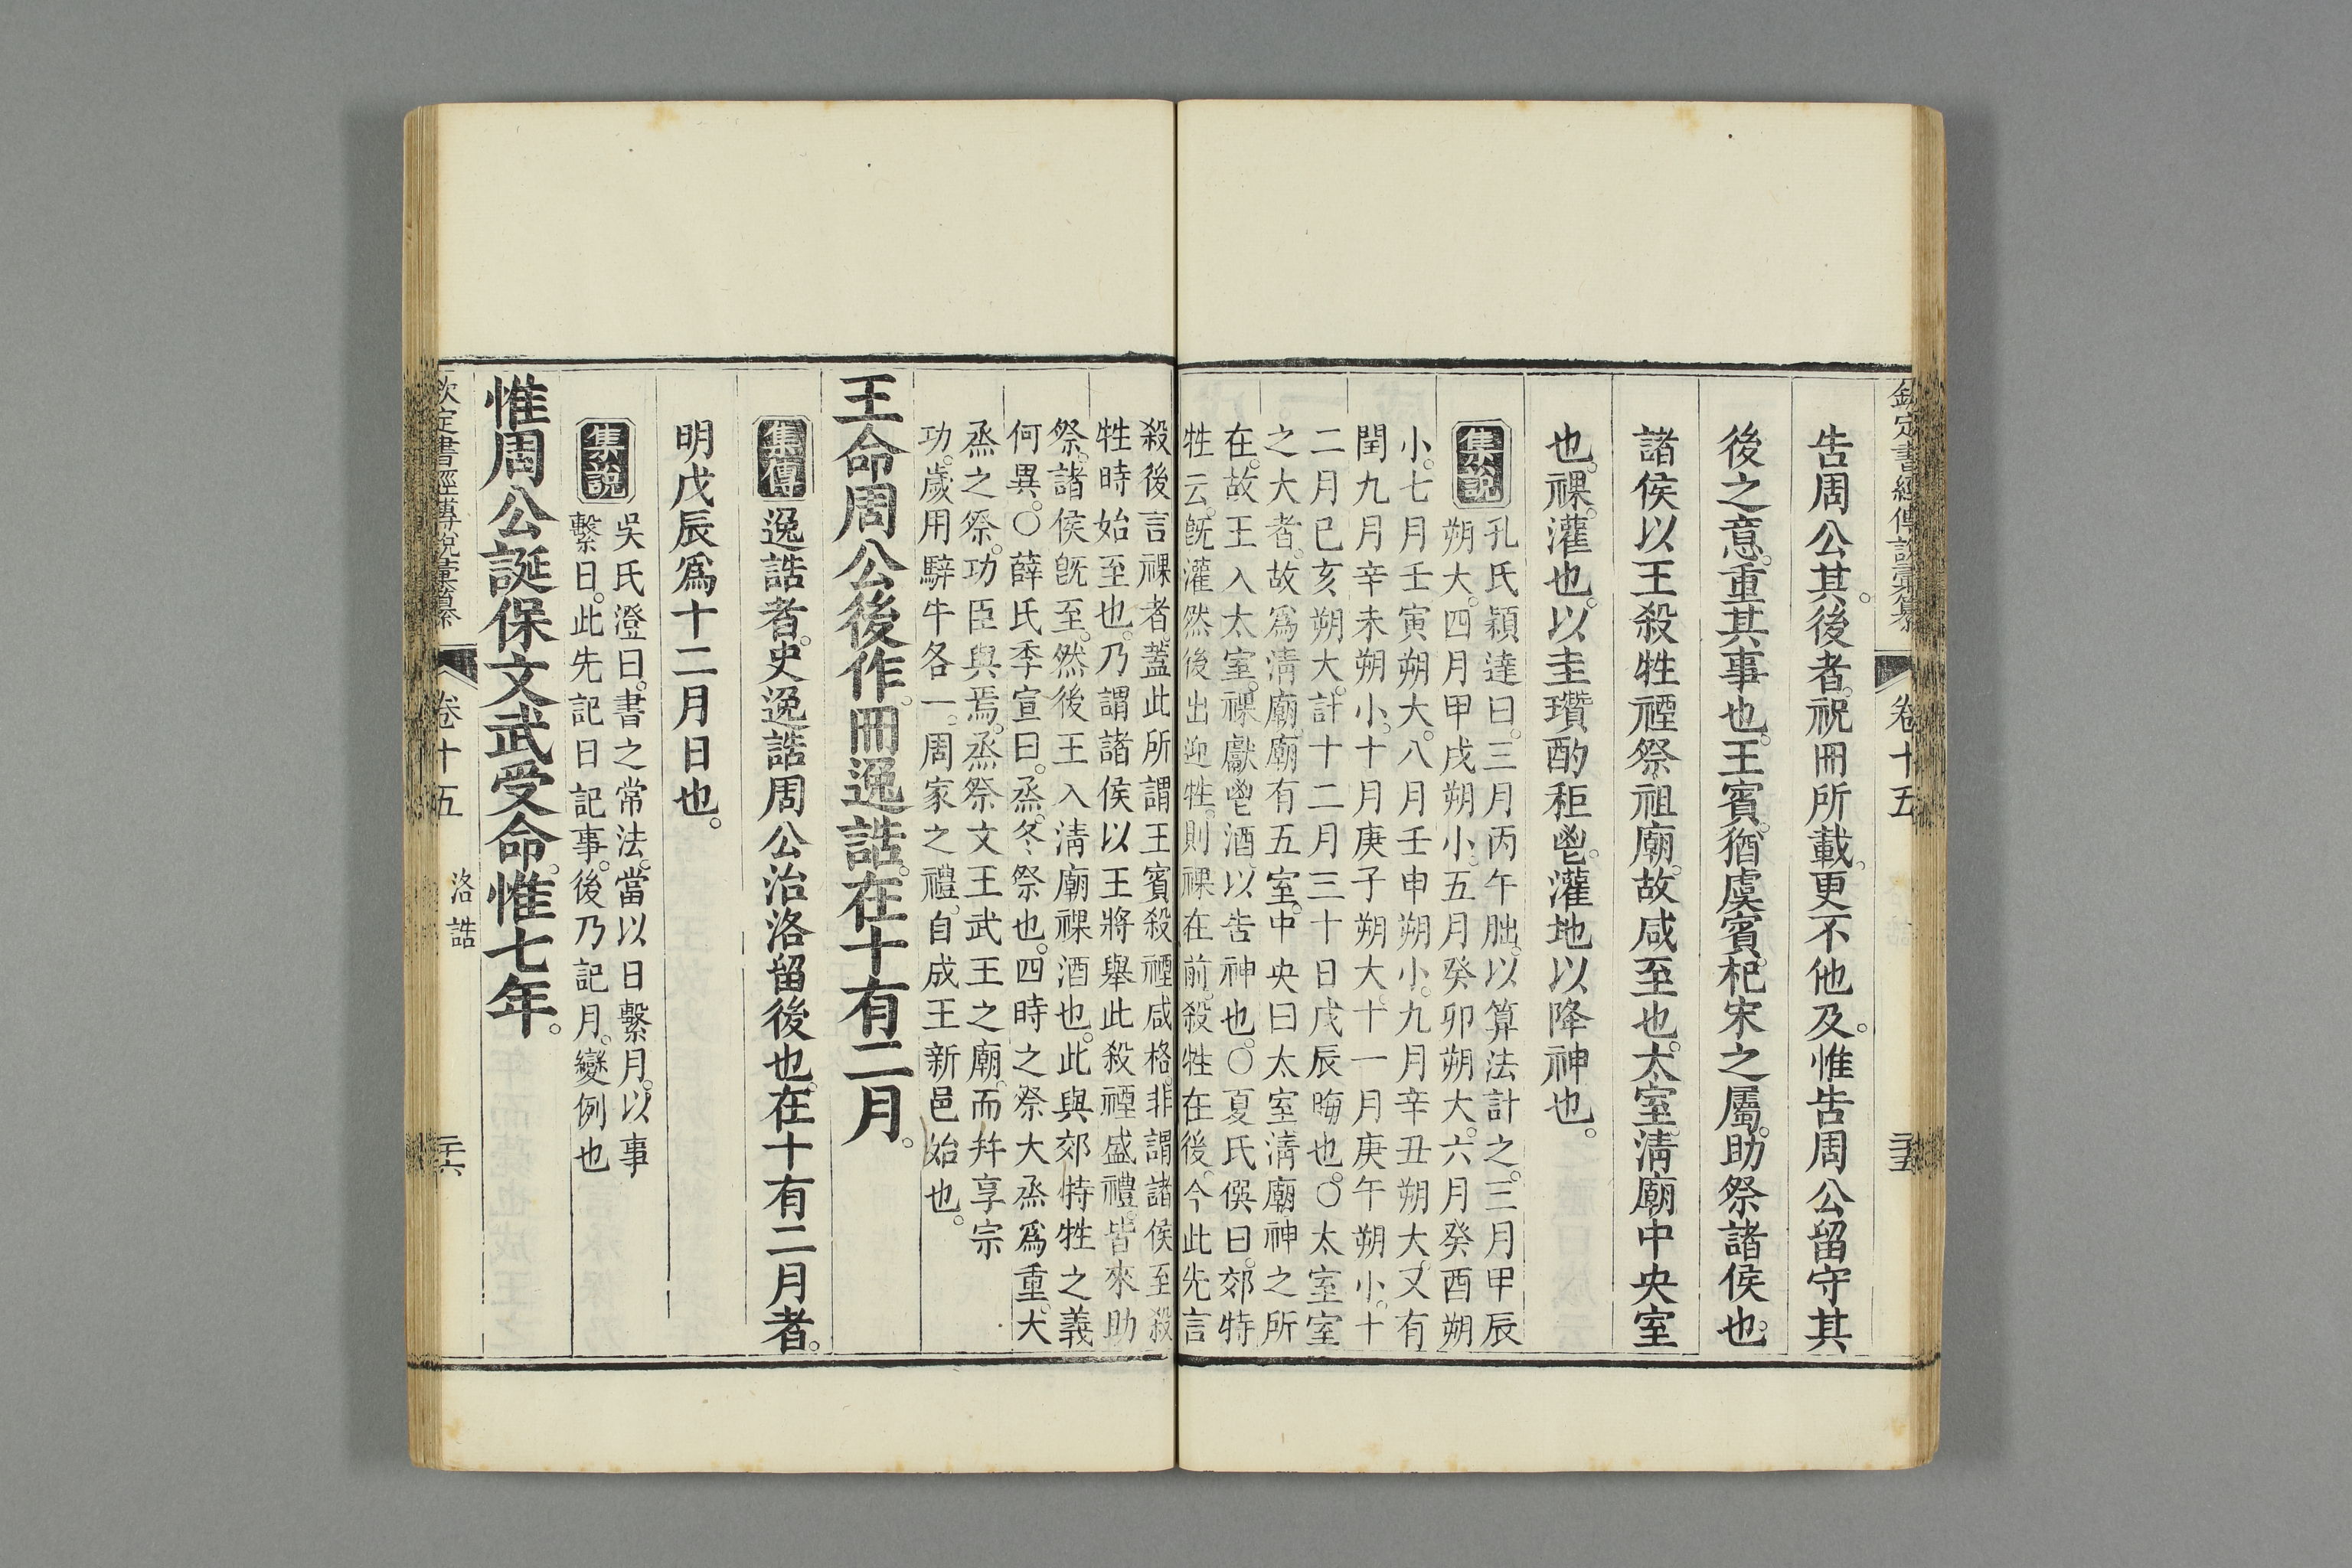 欽定書經傳說彙纂 卷十五 三五
告周公其後者祝冊所載更不他及惟告周公留守其
後之意重其事也王賓猶虞賓杞宋之屬助祭諸侯也
諸侯以王殺牲禋祭祖廟故咸至也太室淸廟中央室
也祼灌也以圭瓚酌秬鬯灌地以降神也
集說
孔氏穎達曰三月丙午朏以算法計之三月甲辰
朔大四月甲戌朔小五月癸卯朔大六月癸酉朔
小七月壬寅朔大八月壬申朔小九月辛丑朔大又有
閏九月辛未朔小十月庚子朔大十一月庚午朔小十
二月已亥朔大計十二月三十日戊辰晦也○太室室
之大者故爲淸廟廟有五室中央曰太室淸廟神之所
在故王入太室祼獻鬯酒以告神也○夏氏僎曰郊特
牲云旣灌然後出迎牲則祼在前殺牲在後今此先言
殺後言祼者蓋此所謂王賓殺禋咸格非謂諸侯至殺
牲時始至也乃謂諸侯以王將舉此殺禋盛禮皆來助
祭諸侯旣至然後王入淸廟祼酒也此與郊特牲之義
何異○薛氏季宣曰烝冬祭也四時之祭大烝爲重大
烝之祭功臣與焉烝祭文王武王之廟而幷享宗
功歲用騂牛各一周家之禮自成王新邑始也
王命周公後作冊逸誥在十有二月
集傳
逸誥者史逸誥周公治洛留後也在十有二月者
明戊辰爲十二月日也
集說
吳氏澄曰書之常法當以日繫月以事
繫日此先記日記事後乃記月變例也
惟周公誕保文武受命惟七年
欽定書經傳說彙纂 卷十五 洛誥 三六